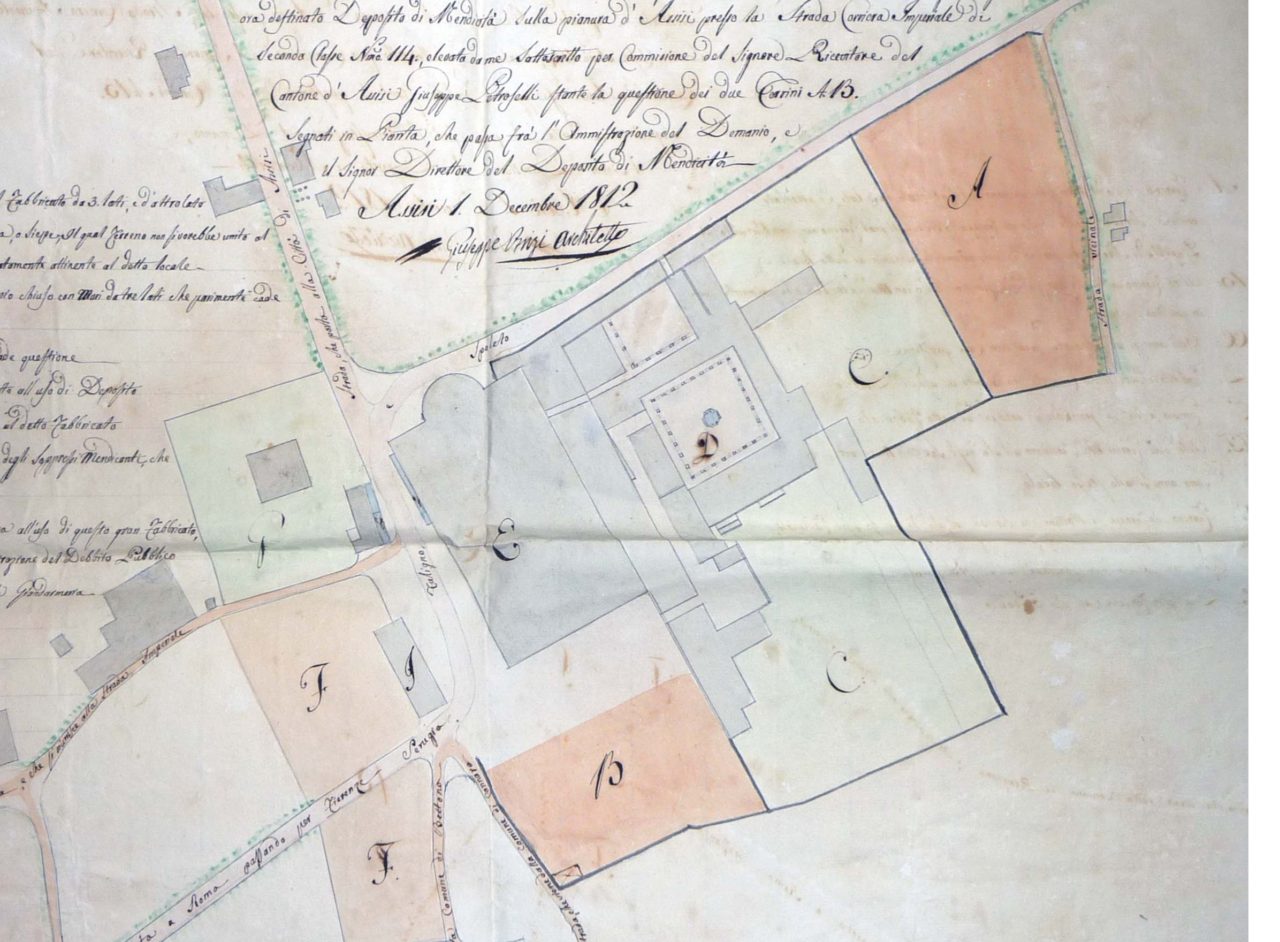 ora destinato Deposito di Mendicità sulla pianura d'Assisi presso la Strada Corriera Imperiale di
Seconda Classe Num.º 114. elevata da me sottoscritto per Commisione del Signore Ricevitore del
Cantone d'Assisi Giuseppe Petroselli stante la questione dei due Terrini A. B.
Segnati in Pianta, che passa frà l'Ammistrazione del Demanio, e
il Signor Direttore del Deposito di Mendicità
Assisi 1. Decembre 1812
Giuseppe Brizi Architetto
Fabbricato da 3. lati, e d'altro lato
a, o Sieppe, Il qual Terreno non si vorebbe unito al
attinente al detto locale
chiuso con Muri da tre lati che parimente cade
questione
all'uso di Deposito
al detto Fabbricato
degli Soppressi Mendicanti, che
all'uso di questo gran Fabbricato,
del Debbito Pubblico
Giandarmeria
Strada, che porta alla Città di Assisi
Spoleto
Foligno
Strada Vicinale
A
C
D
E
G
C
F
I
B
F
che si immette alla Strada Imperiale
a Roma passando per Firenze
Perugia
Comune di Bettona
Strada, che viene dalla Comune di Cannara